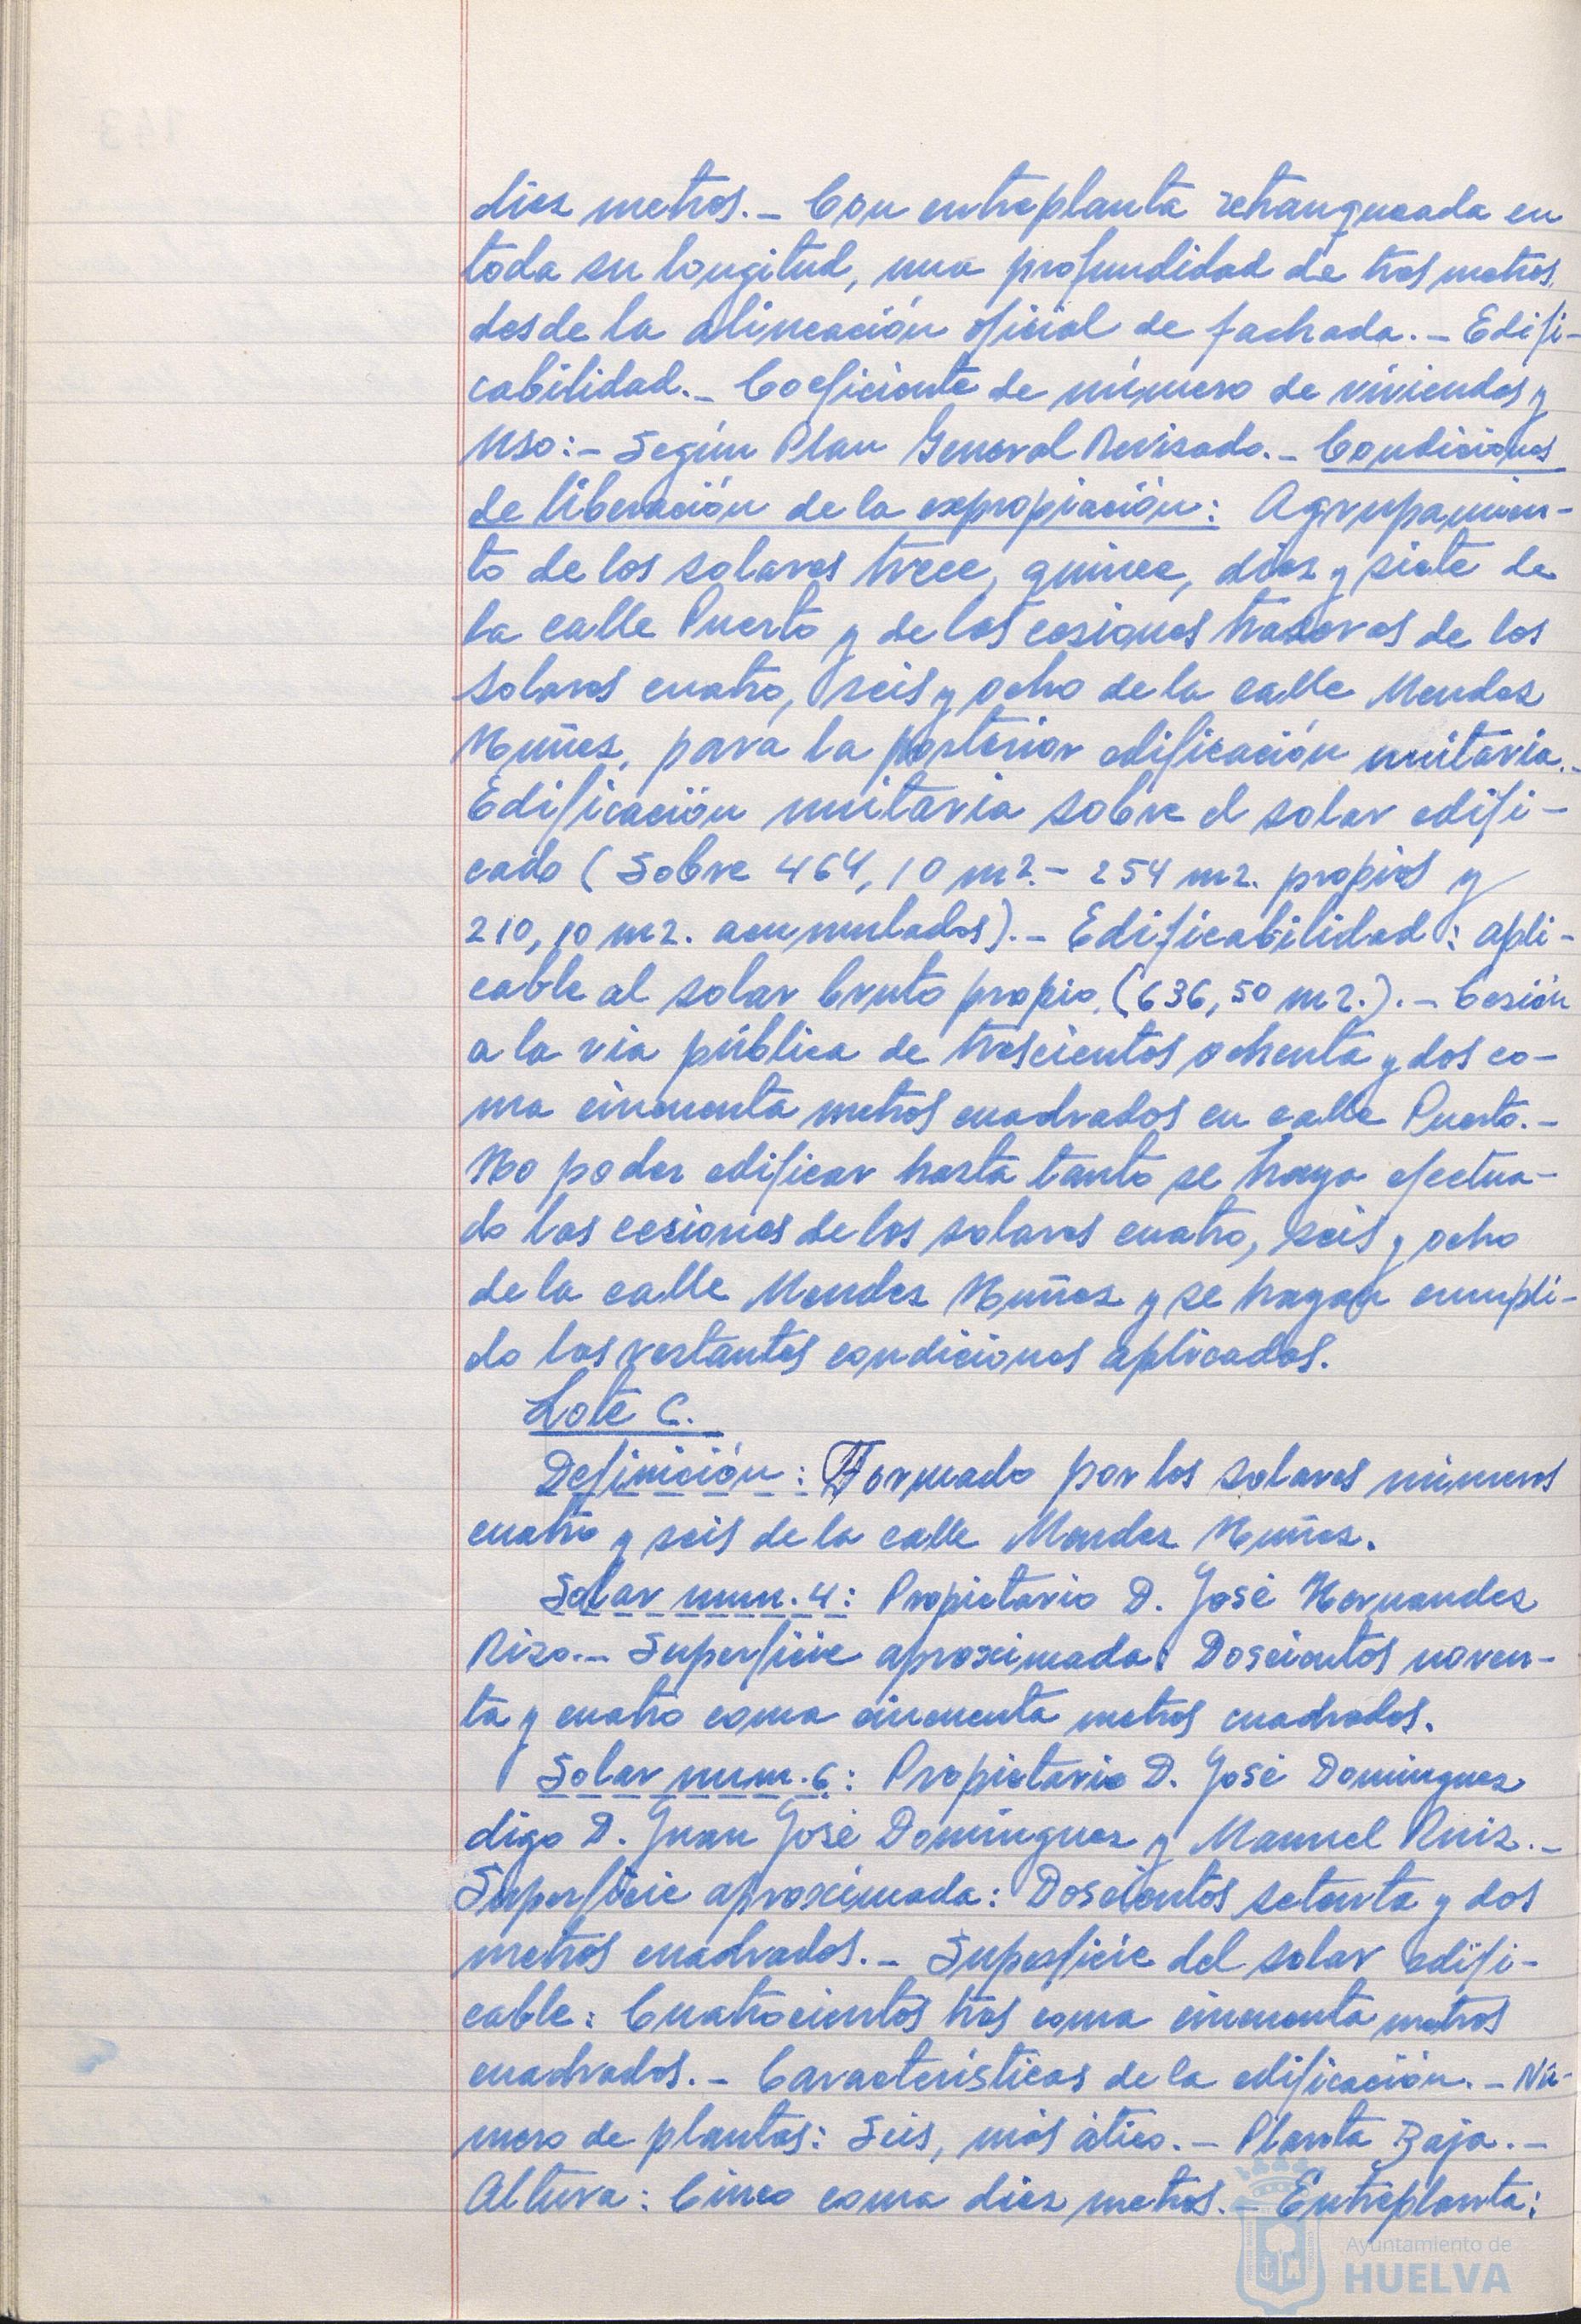 diez metros.- Con entreplanta retranqueada en
toda su longitud, una profundidad de tres metros,
desde la alineación oficial de fachada.- Edifi-
cabilidad.- Coeficiente de número de viviendas y
Uso:- Según Plan General Revisado.- Condiciones
de liberación de la expropiación: Agrupamien-
to de los solares trece, quince, diez y siete de
la calle Puerto y de las cesiones traseras de los
solares cuatro, seis y ocho de la calle Mendez
Nuñez, para la posterior edificación unitaria.-
Edificación unitaria sobre el solar edifi-
cado (Sobre 464,10 m2.- 254 m2. propios y
210,10 m2. acumulados).- Edificabilidad: apli-
cable al solar bruto propio (636,50 m2.).- Cesión
a la via pública de trescientos ochenta y dos co-
ma cincuenta metros cuadrados en calle Puerto.-
No poder edificar hasta tanto se haya efectua-
do las cesiones de los solares cuatro, seis y ocho
de la calle Mendez Nuñez y se hayan cumpli-
do las restantes condiciones aplicadas.
Lote C.
Definición: Formado por los solares números
cuatro y seis de la calle Mendez Nuñez.
Solar num. 4: Propietario D. José Hernandez
Rizo.- Superficie aproximada: Doscientos noven-
ta y cuatro coma cincuenta metros cuadrados.
Solar num. 6: Propietario D. José Dominguez
digo D. Juan José Domínguez y Manuel Ruiz.-
Superficie aproximada: Doscientos setenta y dos
metros cuadrados.- Superficie del solar edifi-
cable: Cuatrocientos tres coma cincuenta metros
cuadrados.- Características de la edificación.- Nú-
mero de plantas: Seis, más ático.- Planta Baja.-
Altura: Cinco coma diez metros.- Entreplanta:
Ayuntamiento de
HUELVA